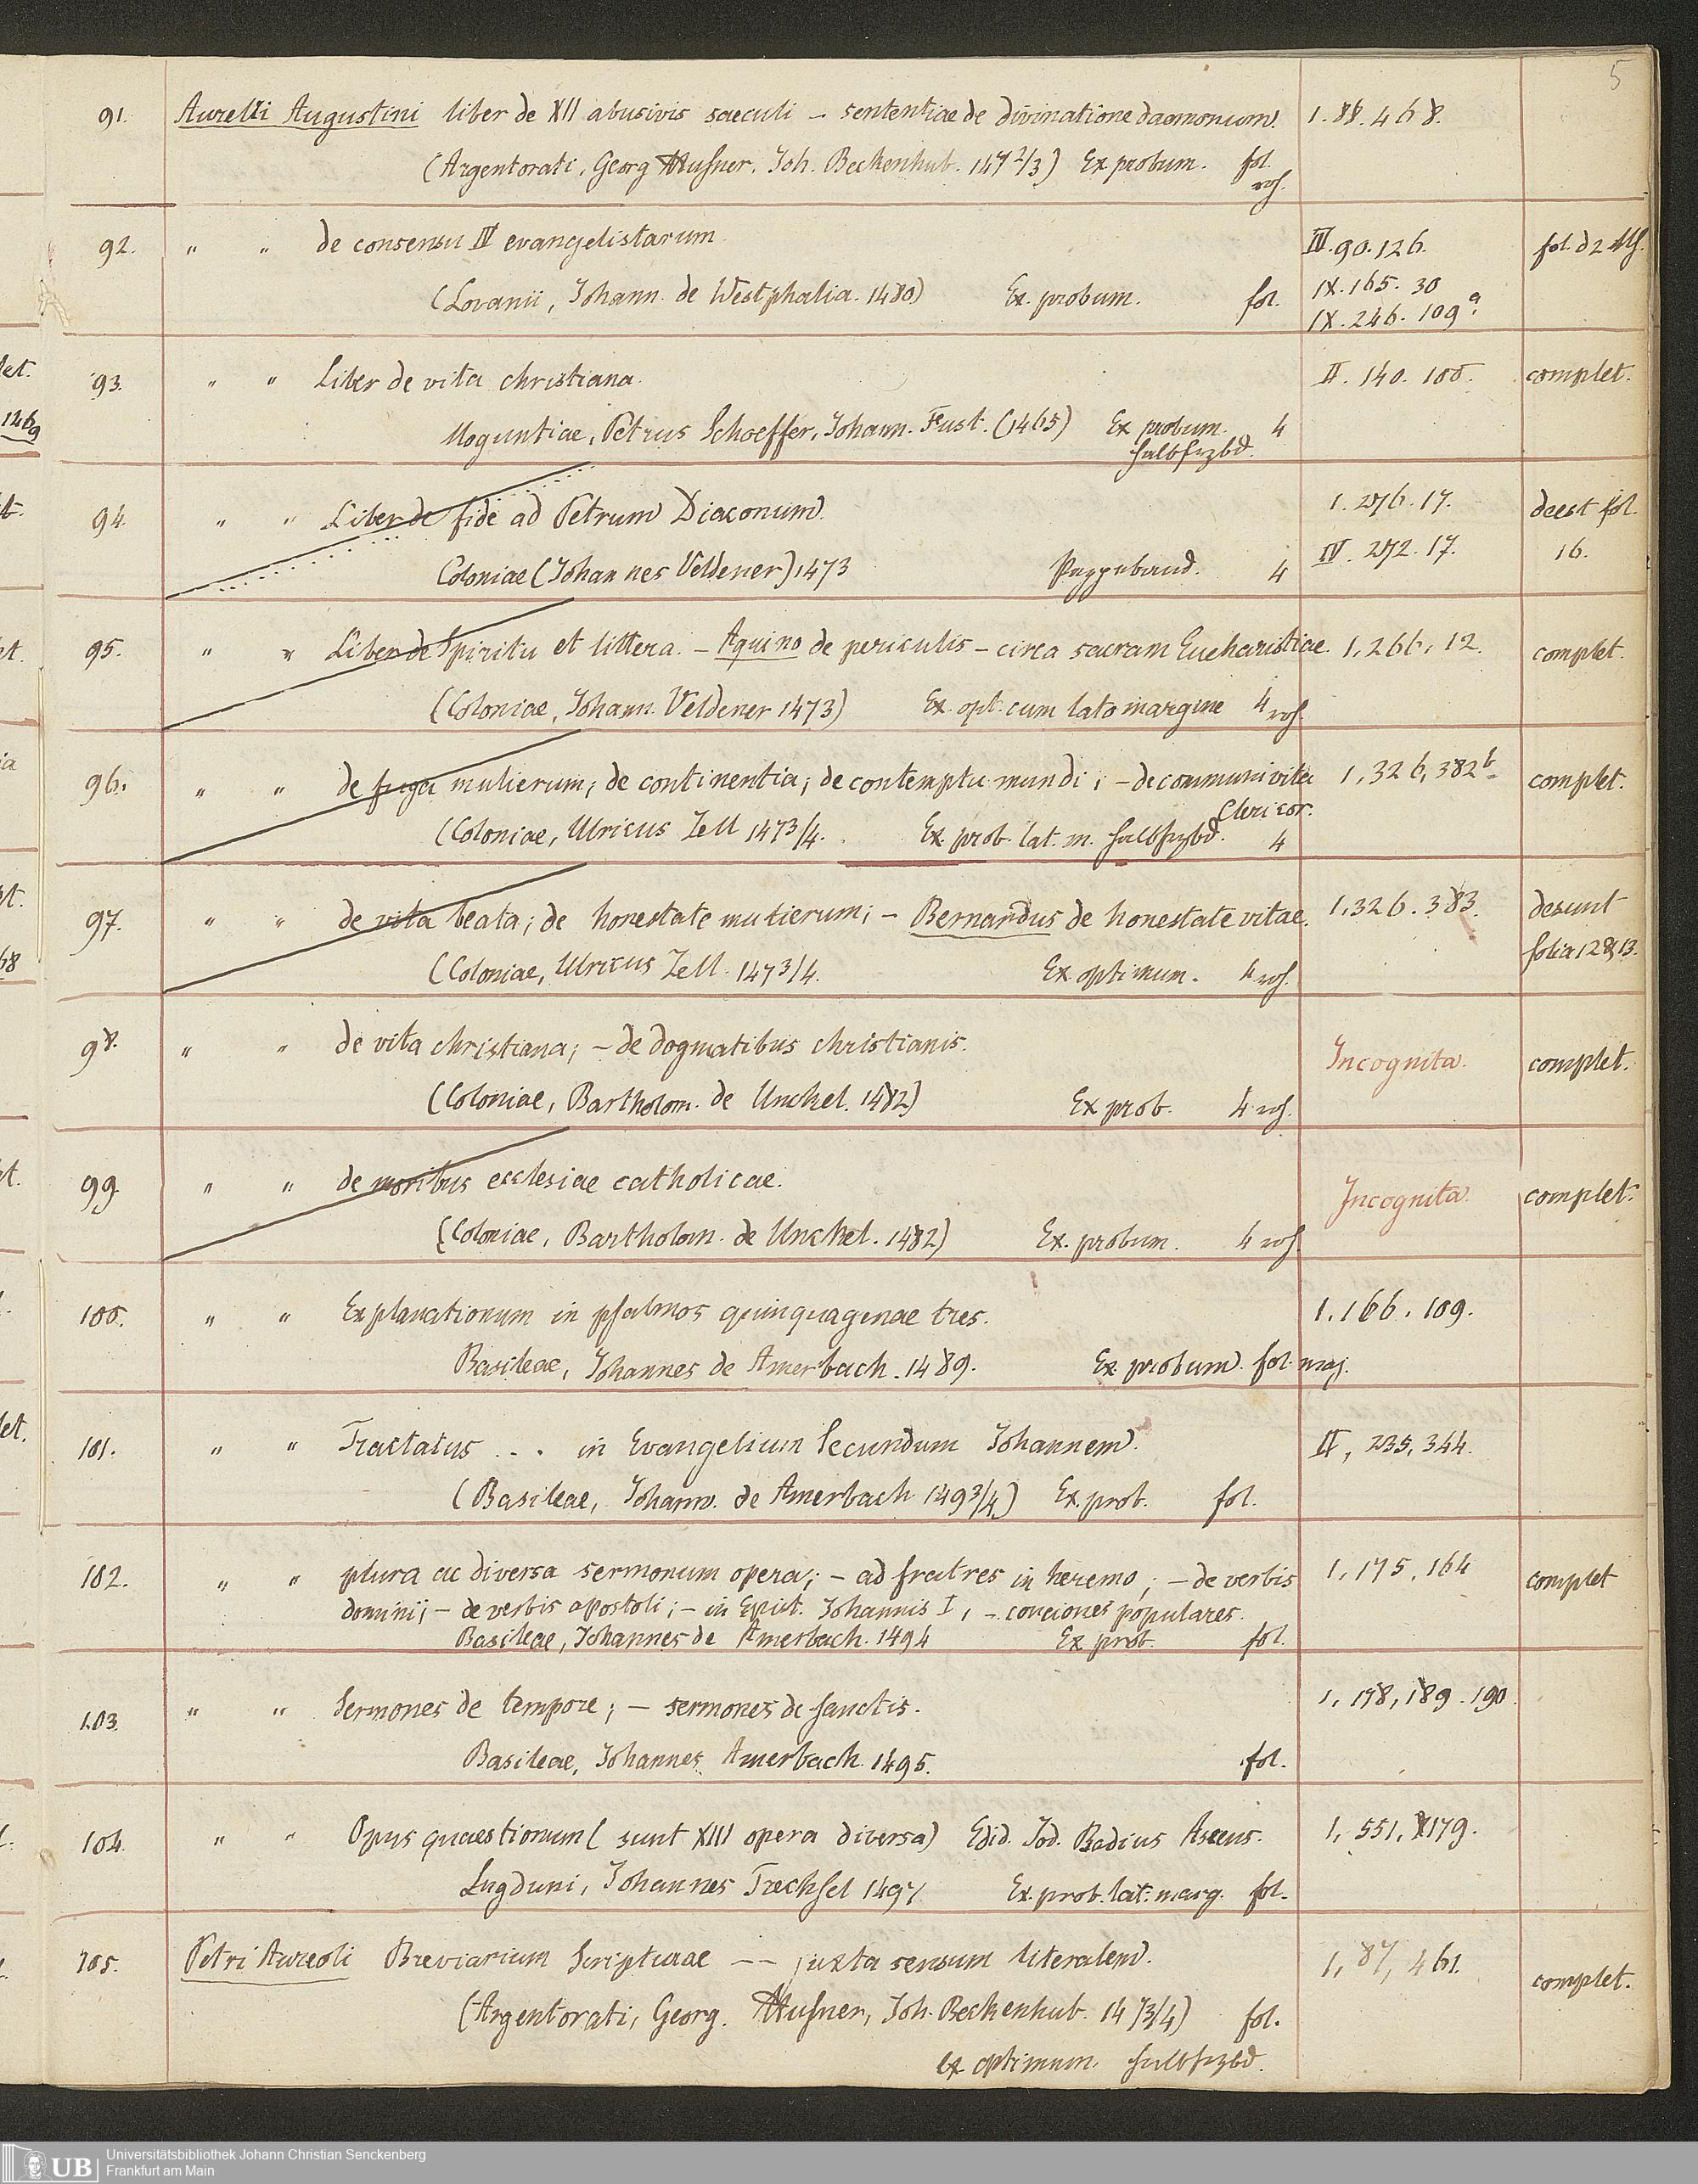 5
91. Aurelii Augustini liber de XII abusivis saeculi – sententiae de divinatione daemonum. 1. 88. 468.
(Argentorati, Georg Husner. Joh. Beckenhub. 147 2/3) Ex probum. fol.
roh.
92. " " de consensu IV evangelistarum IV. 90. 126. fol. d2
(Lovanii, Johann. de Westphalia. 1480) Ex. probum. fol. IX. 165. 30
IX. 246. 109a.
93. " " Liber de vita christiana. II. 140. 100. complet.
Moguntiae, Petrus Schoeffer, Johann. Fust. (1465) Ex probum. 4
Halbfrzbd.
94. " " Liber de fide ad Petrum Diaconum. 1. 276. 17. deest fol.
Coloniae (Johannes Veldener) 1473 Pappband. 4 IV. 272. 17. 16.
95. " " Liber de Spiritu et littera. – Aquino de periculis – circa sacram Eucharistiae. 1, 266, 12. complet.
(Coloniae, Johann. Veldener 1473) Ex. opt. cum lato margine 4 roh.
96. " " de fuga mulierum; de continentia; de contemptu mundi; – de communi vita 1, 326, 382b. complet.
Clericor.
(Coloniae, Ulricus Zell 1473/4. Ex. prob. lat. m. Halbfrzbd. 4
97. " " de vita beata; de honestate mulierum; – Bernardus de honestate vitae. 1. 326. 383. desunt
folia 12 & 13.
(Coloniae, Ulricus Zell. 1473/4. Ex. optimum. 4 roh.
98. " " de vita christiana; – de dogmatibus christianis. Incognita. complet.
(Coloniae, Bartholom. de Unckel. 1482) Ex prob. 4 roh.
99. " " de moribus ecclesiae catholicae. Incognita. complet.
(Coloniae, Bartholom. de Unckel. 1482) Ex. probum. 4 roh.
100. " " Explanationum in psalmos quinquagenae tres. 1. 166. 109.
Basileae, Johannes de Amerbach. 1489. Ex. probum. fol. maj.
101. " " Tractatus . . . in Evangelium Secundum Johannem. II, 235, 344.
(Basileae, Johann. de Amerbach 1493/4) Ex. prob. fol.
102. " " plura ac diversa sermonum opera; – ad fratres in heremo; – de verbis 1, 175, 164 complet
domini; – de verbis apostoli; – in Epist. Johannis I, – conciones populares.
Basileae, Johannes de Amerbach. 1494 Ex prob. fol.
103. " " Sermones de tempore; – sermones de sanctis. 1, 178, 189. 190.
Basileae, Johannes Amerbach. 1495. fol.
104. " " Opus quaestionum (sunt XIII opera diversa) Edid. Jod. Badius Ascens. 1, 551, 179.
Lugduni, Johannes Trechsel 1497 Ex. prob. lat. marg. fol.
105. Petri Aureoli Breviarium Scripturae – – juxta sensum literalem. 1, 87, 461. complet.
(Argentorati, Georg. Husner, Joh. Beckenhub. 1473/4) fol.
ex. optimum. Halbfrzbd.
UB Universitätsbibliothek Johann Christian Senckenberg
Frankfurt am Main